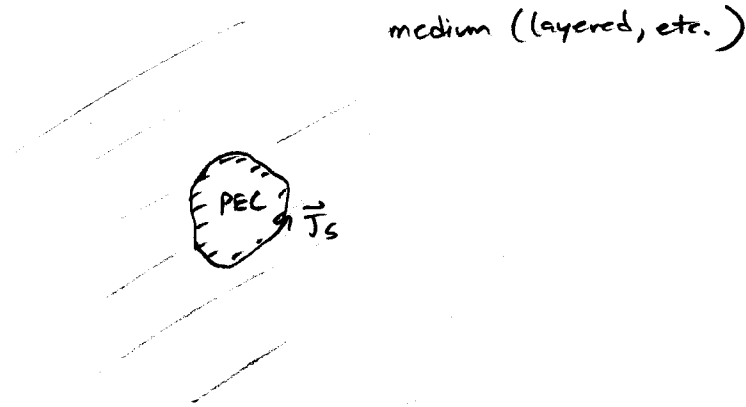 medium (layered, etc.)
PEC
J⃗s